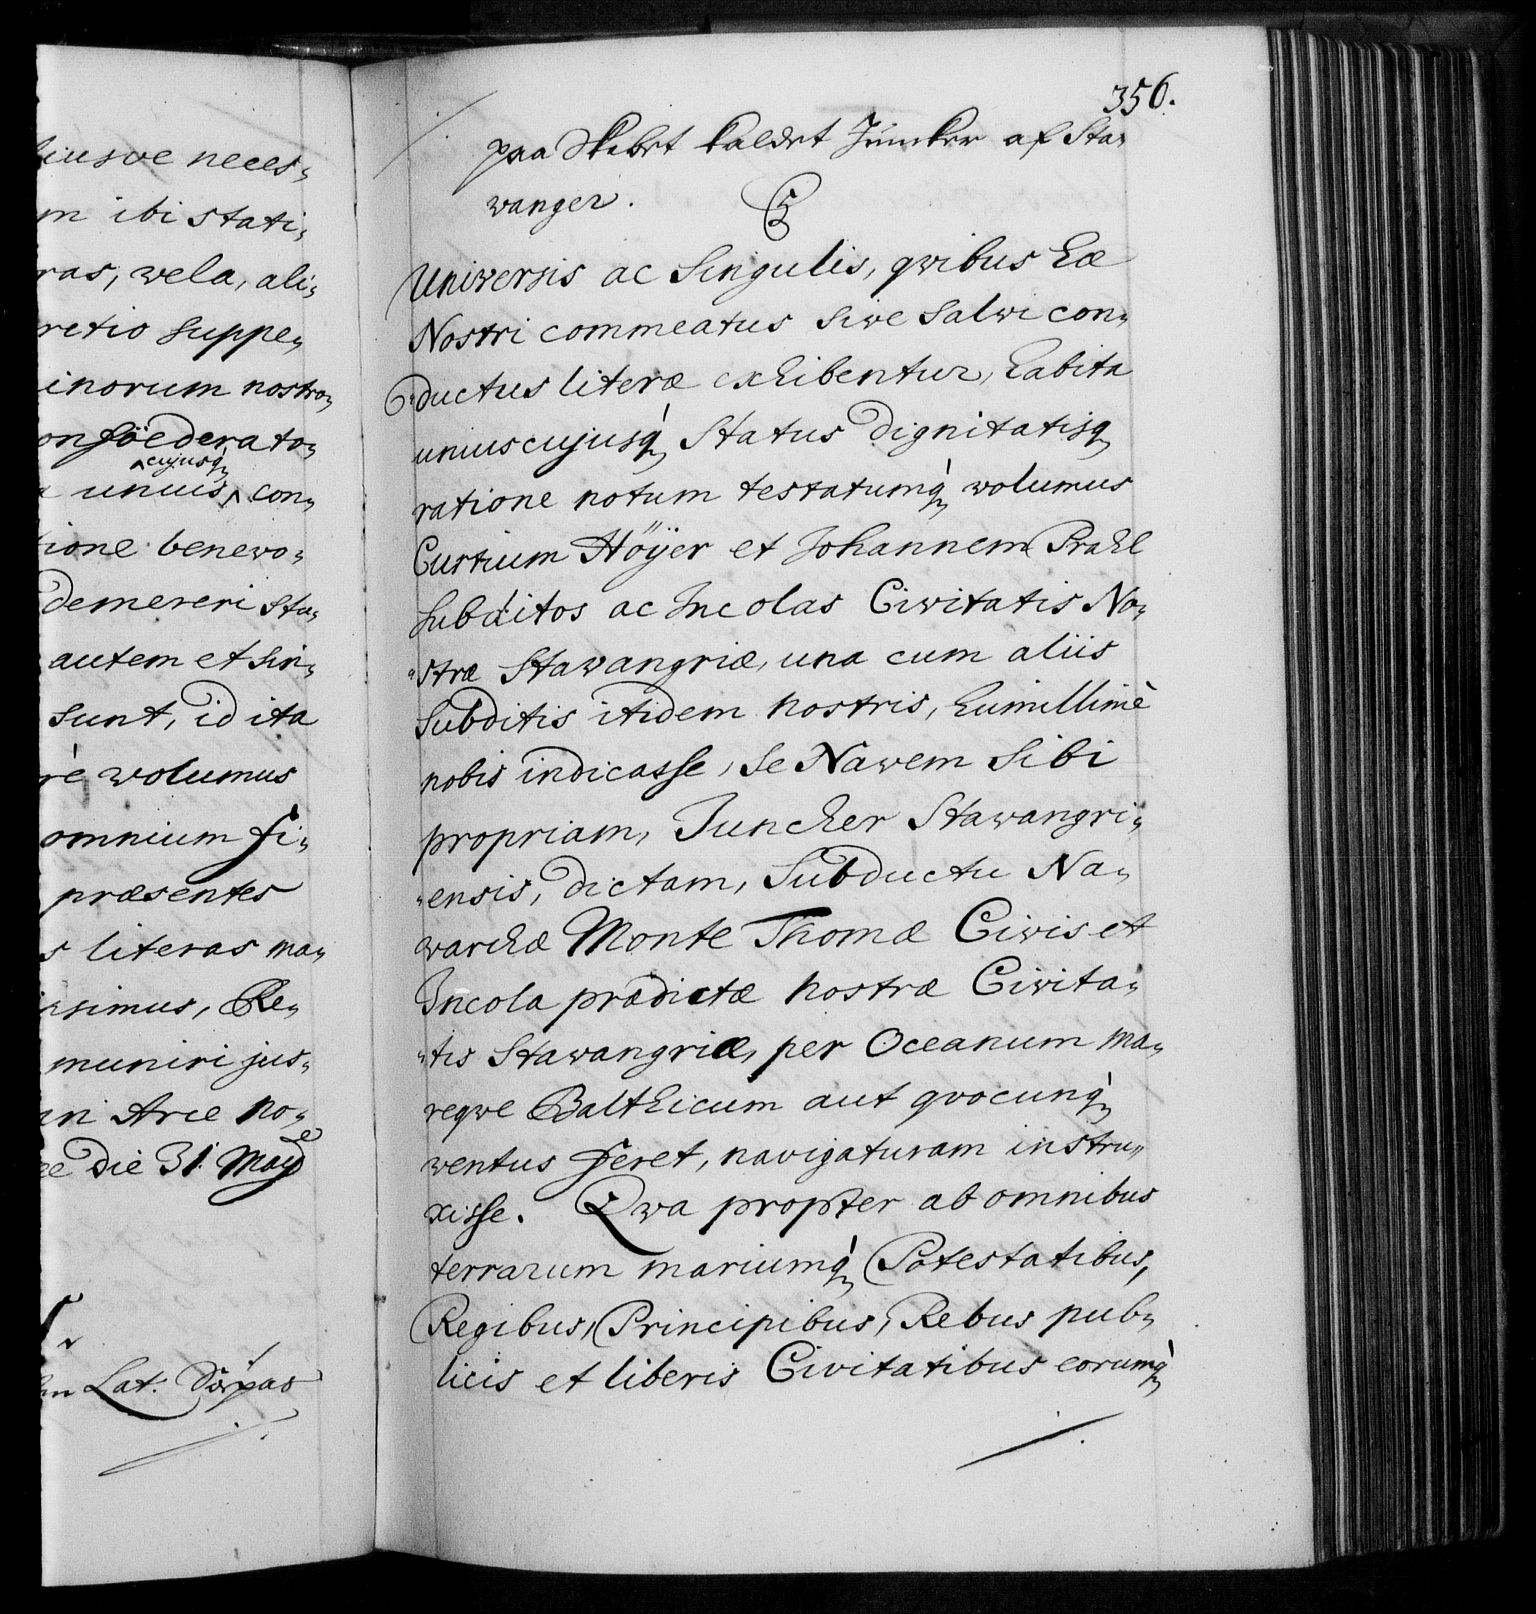 iusve neces„
m ibi stati„
ras, wela, ali„
retio suppe„
inorum nostro„
onföederato„
cujusq́
unuis, con„
tione benewo„
demereri stu„
autem et sin„
sunt, id ita
rè wolumus
omnium fi„
præsentes
s literas ma„
issimus, Re„
muniri jus„
in Arce no„
die 31 Maÿ
Lat. Dörpao
356.
paa Skibet kaldet Juncker af Sta„
wanger.
C5
Universis ac Singulis, qvibus hæ
Nostri commeatus sive salwi con„
ductus literæ exhibentur, habita
uniuscujusq́ Status dignitatisq
ratione notum testatumq́ wolumus
Curtium Höÿer et Johannem Prahl
Subditos ac Incolas Civitatis No„
„stræ Stawangriæ, una cum aliis
Subditis itidem nostris, humillimè
nobis indicasse, se Nawem Sibi
propriam, Juncher Stawangri„
„ensis, dictam, Subductu Na„
warchæ Monte Thomæ Civis et
Incola prædictæ nostræ Civita„
„tis Stawangriæ, per Oceanum ma„
reqve Balthicum aut qvocunq́
wentus feret, navigaturam instru„
xisse. Qwa propter ab omnibus
terrarum mariumq́ Potestatibus,
Regibus, Principibus, Rebus pub„
licis et liberis Civitatibus eorumq́